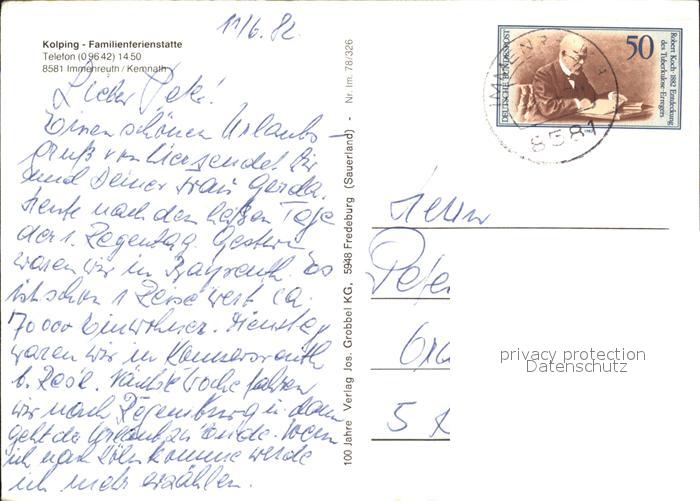 11/6. 82
Kolping - Familienferienstatte
Telefon (0 96 42) 14 50
8581 Immenreuth / Kemnath
Lieber Peter!
Einen schönen Urlaubs-
gruß von hier sendet Dir
und Deiner Frau Gerda.
Heute nach den heißen Tage
der 1. Regentag. Gestern
waren wir in Bayreuth. Es
ist schon 1 Reise wert ca.
70 000 Einwohner. Dienstag
waren wir in Konnersreuth
b. Resl. Nächste Woche fahren
wir nach Regensburg u. dann
geht der Urlaub zu Ende. Wenn
ich nach Köln komme werde
ich mehr erzählen.
100 Jahre Verlag Jos. Grobbel KG, 5948 Fredeburg (Sauerland) - Nr. Im. 78/326
DEUTSCHE BUNDESPOST
50
Robert Koch · 1882 Entdeckung
des Tuberkulose-Erregers
8581
Herrn
Peter
5
privacy protection
Datenschutz